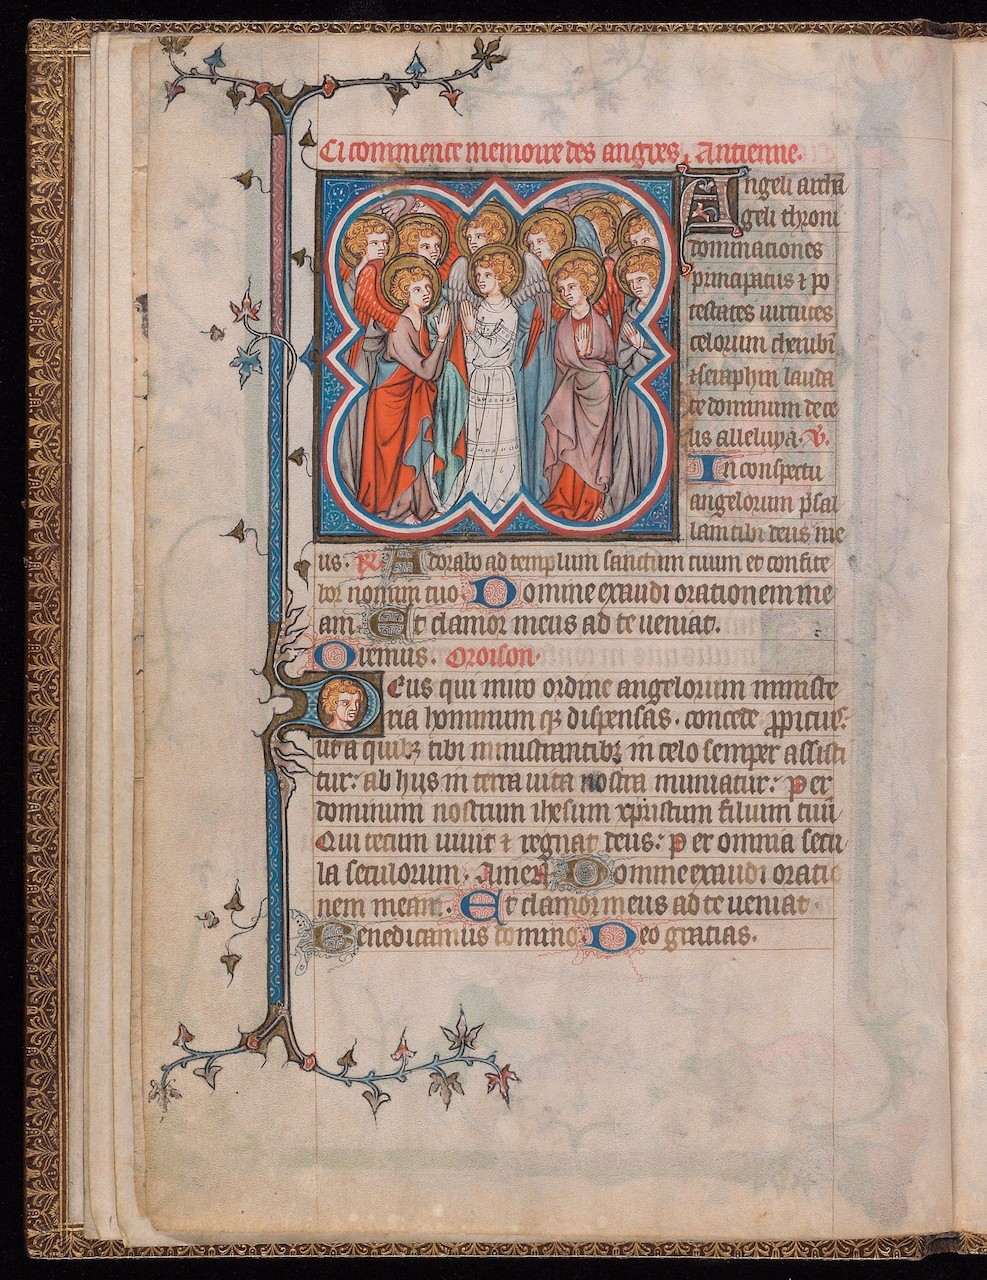 Ci commence memoire des angres. Antienne.
Angeli archā
geli throni
dominationes
principatus ⁊ po
testates uirtutes
celorum cherubī
⁊ seraphin lauda
te dominum de ce
lis alleluya. V̄.
In conspectu
angelorum psal
lam tibi deus me
us. R̄. Adorabo ad templum sanctum tuum et confite
bor nomini tuo Domine exaudi orationem me
am. Et clamor meus ad te ueniat.
Oremus. Oroison.
Deus qui miro ordine angelorum ministe
ria hominum qꝫ dispensas. concede ꝓpicius.
ut a quibꝫ tibi ministrantibꝫ in celo semper assisti
tur: ab hijs in terra uita nostra muniatur: Per
dominum nostrum ihesum xpristum filium tuū
Qui tecum uiuit ⁊ regnat deus: Per omnia secu
la seculorum. Amen Domine exaudi oratio
nem meam. Et clamor meus ad te ueniat.
Benedicamus domino. Deo gratias.